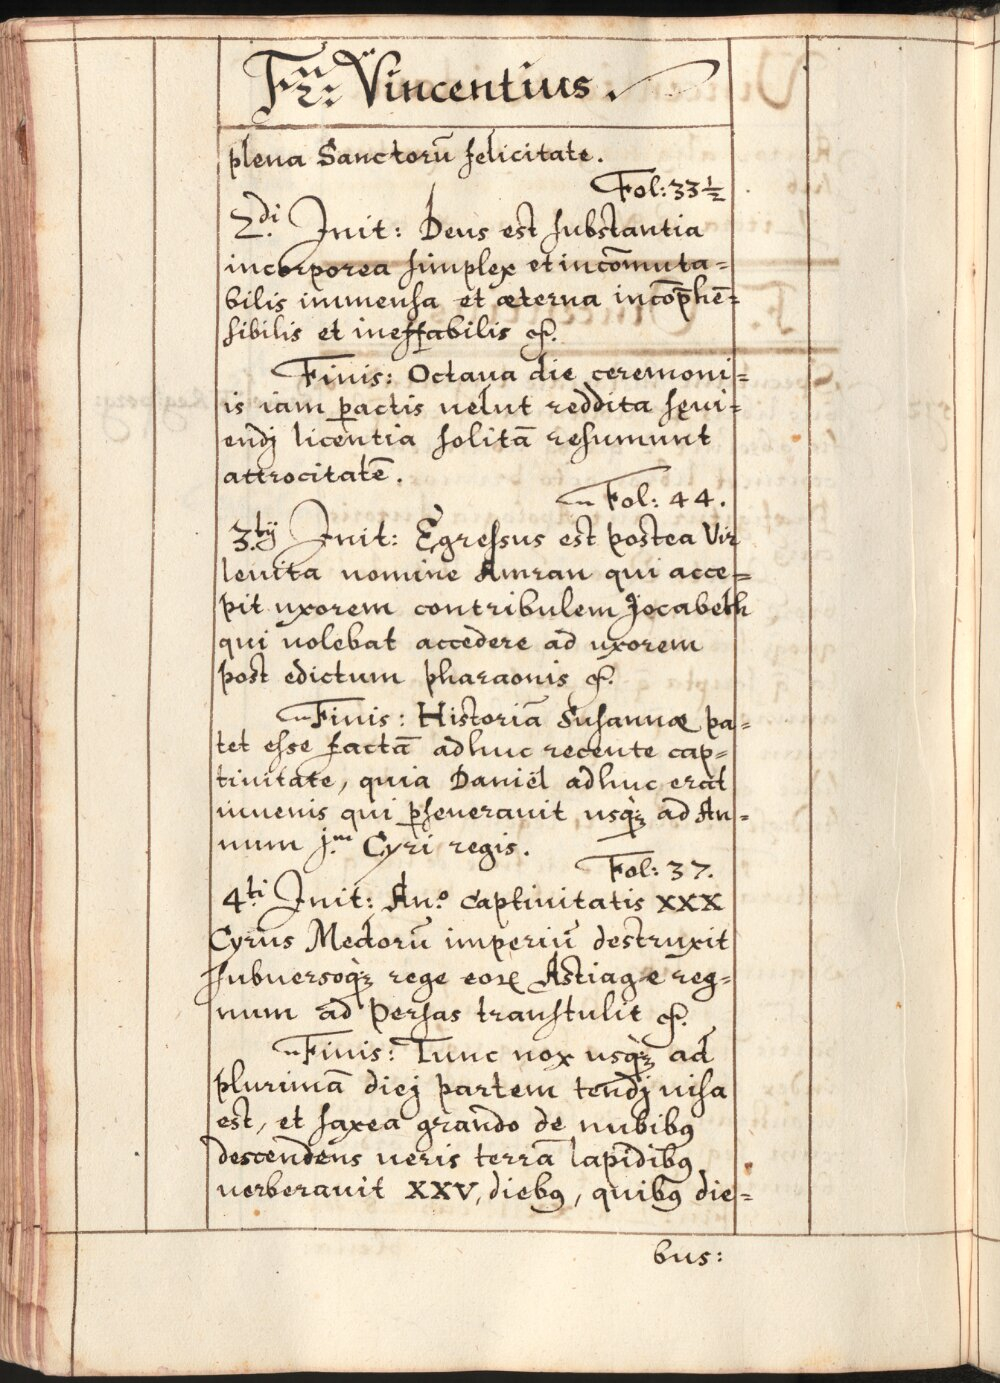 Fr: Vincentius.
plena Sanctorū felicitate.
Fol: 33 ½
2.di Init: Deus est substantia
incorporea simplex et incōmuta=
bilis immensa et æterna incōp̄hē=
sibilis et ineffabilis &.
Finis: Octaua die ceremoni=
is iam ꝑactis uelut reddita sęui=
endj licentia solitā resumunt
attrocitatē.
Fol: 44.
3.tij Init: Egressus est postea Vir
leuita nomine Amran qui acce=
pit uxorem contribulem Jocabeth
qui nolebat accedere ad uxorem
post edictum pharaonis &.
Finis: Historiā Susannæ pa=
tet esse factā adhuc recente cap=
tiuitate, quia Daniël adhuc erat
iuuenis qui ꝑseuerauit usq̀ꝫ ad An=
num j.m Cyri regis.
Fol: 37.
4.ti Init: An.o captiuitatis XXX
Cyrus Medorū imperiū destruxit
subuersoq̀ꝫ rege eoꝝ Astiage reg=
num ad Persas transtulit &.
Finis: Tunc nox usq̀ꝫ ad
plurimā diej partem tendj uisa
est, et saxea grando de nubibꝰ
descendens ueris terrā lapidibꝰ
uerberauit XXV, diebꝰ, quibꝰ die=
bus: